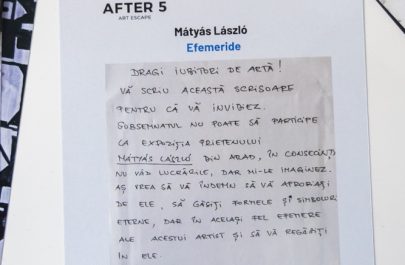 AFTER 5
ART ESCAPE
Mátyás László
Efemeride
DRAGI IUBITORI DE ARTĂ!
VĂ SCRIU ACEASTĂ SCRISOARE
PENTRU CĂ VĂ INVIDIEZ.
SUBSEMNATUL NU POATE SĂ PARTICIPE
LA EXPOZIȚIA PRIETENULUI
MÁTYÁS LÁSZLÓ DIN ARAD, ÎN CONSECINȚĂ
NU VĂD LUCRĂRILE, DAR MI-LE IMAGINEZ.
AȘ VREA SĂ VĂ ÎNDEMN SĂ VĂ APROPIAȚI
DE ELE, SĂ GĂSIȚI FORMELE ȘI SIMBOLURI
ETERNE, DAR ÎN ACELAȘI FEL EFEMERE
ALE ACESTUI ARTIST ȘI SĂ VĂ REGĂSIȚI
ÎN ELE.